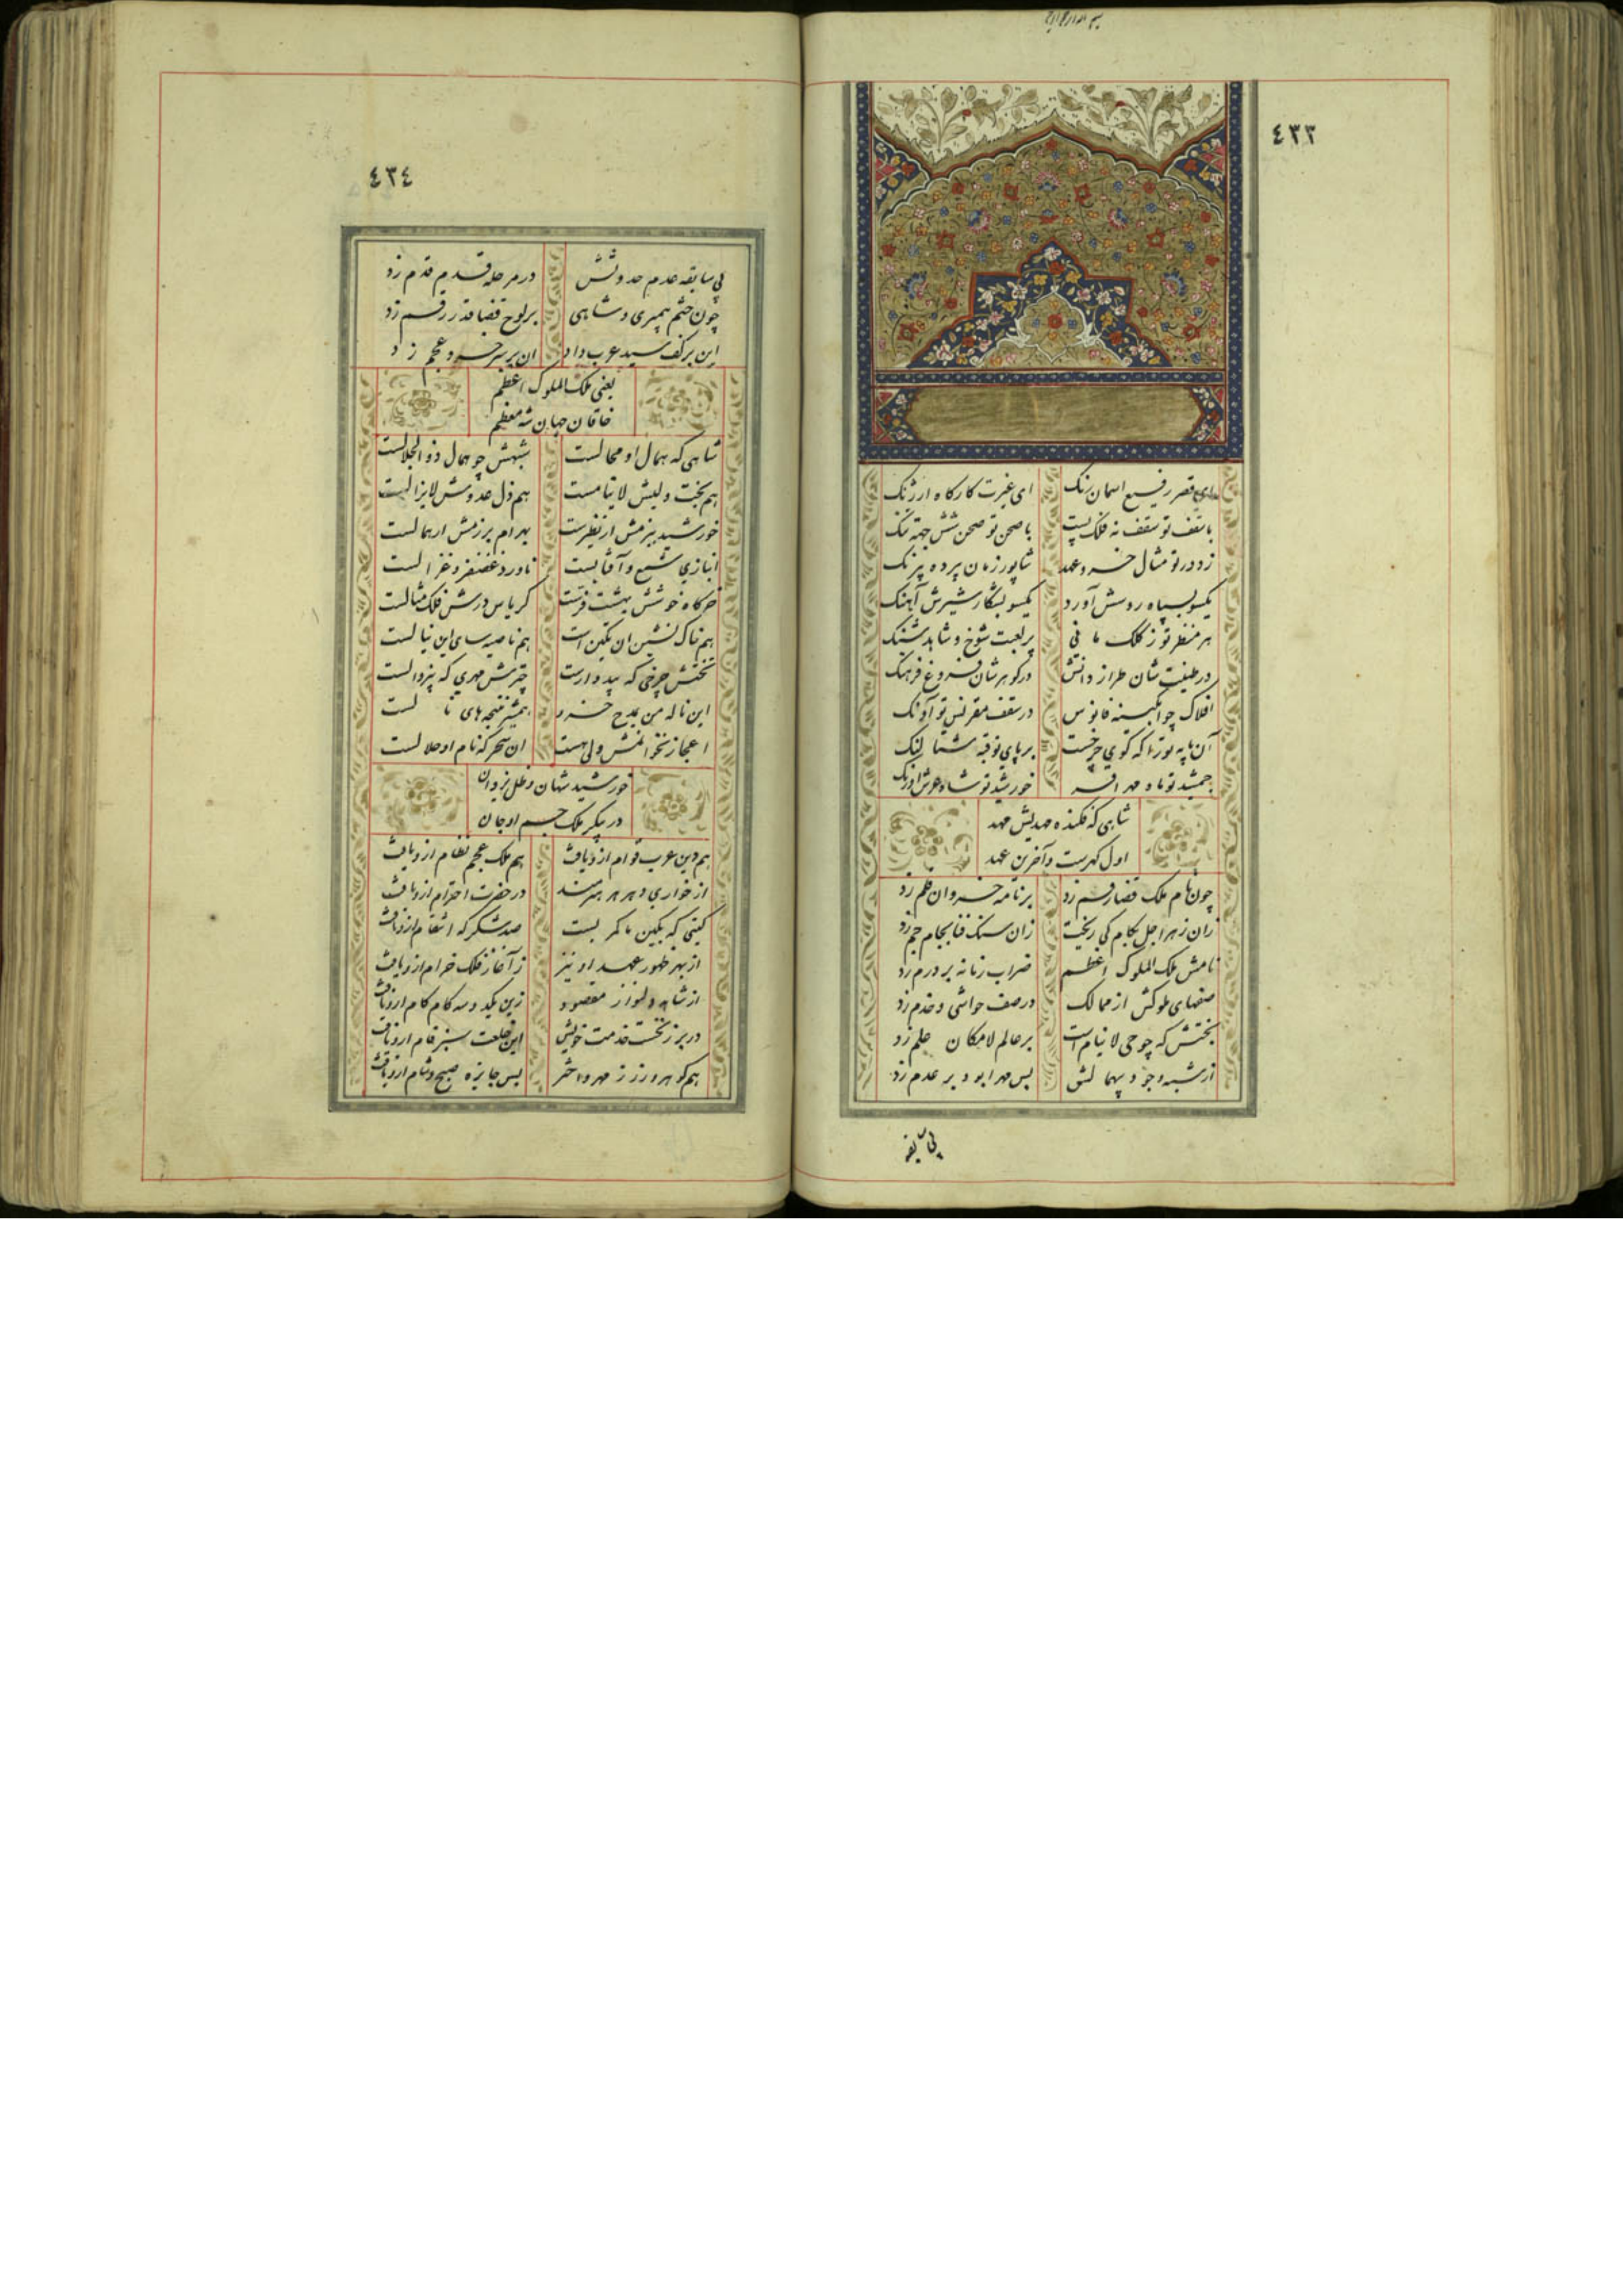 ٤٣٣
ای قصر رفیع اسمان رنک ای غیرت کارکاه ارژنک
با سقف تو سقف نه فلک پست با صحن تو صحن شش جهة تنک
زد در تو مثال خسرو عهد شاپور زمان پرده نیرنک
یکسو بسپاه روسش آورد یکسو بشکار شیرش آهنک
هر منظر تو ز کلک مانی پر لعبت شوخ و شاهد شنک
در طینت شان طراز دانش در کوهر شان فروغ فرهنک
افلاک چو ابکینه فانوس در سقف مقرنس تو آونک
آن پایه تو را که کوی چرخست بر پای تو قبه شما لنک
جمشید تو ماه مهر افسر خورشید تو شاه عرش اورنک
شاهی که فکنده مهدیش مهد
اول کهرست و آخرین عهد
چون نام ملک قضا رقم زد بر نامه خسروان قلم زد
زان زهر اجل بکام کی ریخت زان سنک فنا بجام جم زد
نامش ملک الملوک اعظم ضراب زمانه بر درم زد
صفهای ملوکش از ممالک در صف حواشی و خدم زد
بختش که چو حی لا نیام است بر عالم لامکان علم زد
از شبه وجود بهمالش پس مهر ابود بر عدم زد
بی سابقه
٤٣٤
بی سابقه عدم حدوثش در مرحله قدم قدم زد
چون ختم پیمبری و شاهی بر لوح قضا قدر رقم زد
این بر کف سید عرب داد ان بر سر خسرو عجم زد
یعنی ملک الملوک اعظم
خاقان جهان شه معظم
شاهی که همال او محالست شبهش چو همال ذو الجلالست
هم بخت ولیش لا ینامست هم ذل عدوش لایزالست
خورشید ببزمش ار نظیرست بهرام برزمش ار همالست
انبازی شمع و آفتابست ناورد غضنفر و غزالست
خرکاه خوشش بهشت فرتست کریاس درش فلک مثالست
هم خاک نشین ان تکین است هم ناصیه سای این نیالست
تختش چرخی که بیدوارست چترش مهری که بیزوالست
این ناله من بمدح خسرو همشیر نتیجه های نالست
اعجاز نخوانمش ولی هست ان سحر که نام او حلالست
خورشید شهان و ظل یزدان
در پیکر ملک جسم او جان
هم دین عرب قوام ازو یافت هم ملک عجم نظام ازو یافت
از خواری دهر هر هنرمند در حضرت احترام ازو یافت
کیتی که بکین ما کمر بست صد شکر که انتقام ازو یافت
از بهر ظهور عهد او نیز ز آغاز فلک خرام ازو یافت
از شاهد دلنواز مقصود زین یکدوسه کام کام ازو یافت
در بر ز نخست خدمت خویش این خلعت سبز فام ازو یافت
هم کوهر و زر ز مهر و اختر پس جایزه صبح و شام ازو یافت